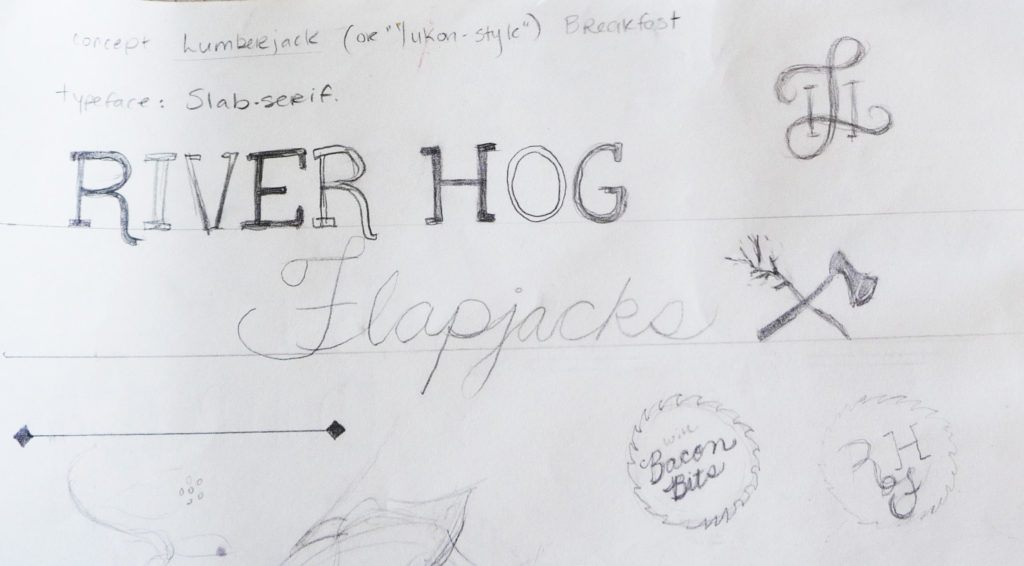 concept Lumberjack (or "Yukon-style") Breakfast
typeface: Slab-serif.
RIVER HOG
Flapjacks
with
Bacon
Bits
RH